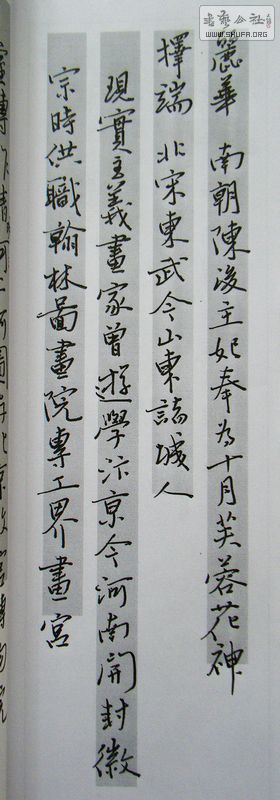 麗華 南朝陳後主妃奉為十月芙蓉花神
擇端 北宋東武今山東諸城人
現實主義畫家曾遊學汴京今河南開封徽
宗時供職翰林圖畫院專工界畫宮
書藝公社
WWW.SHUFA.ORG